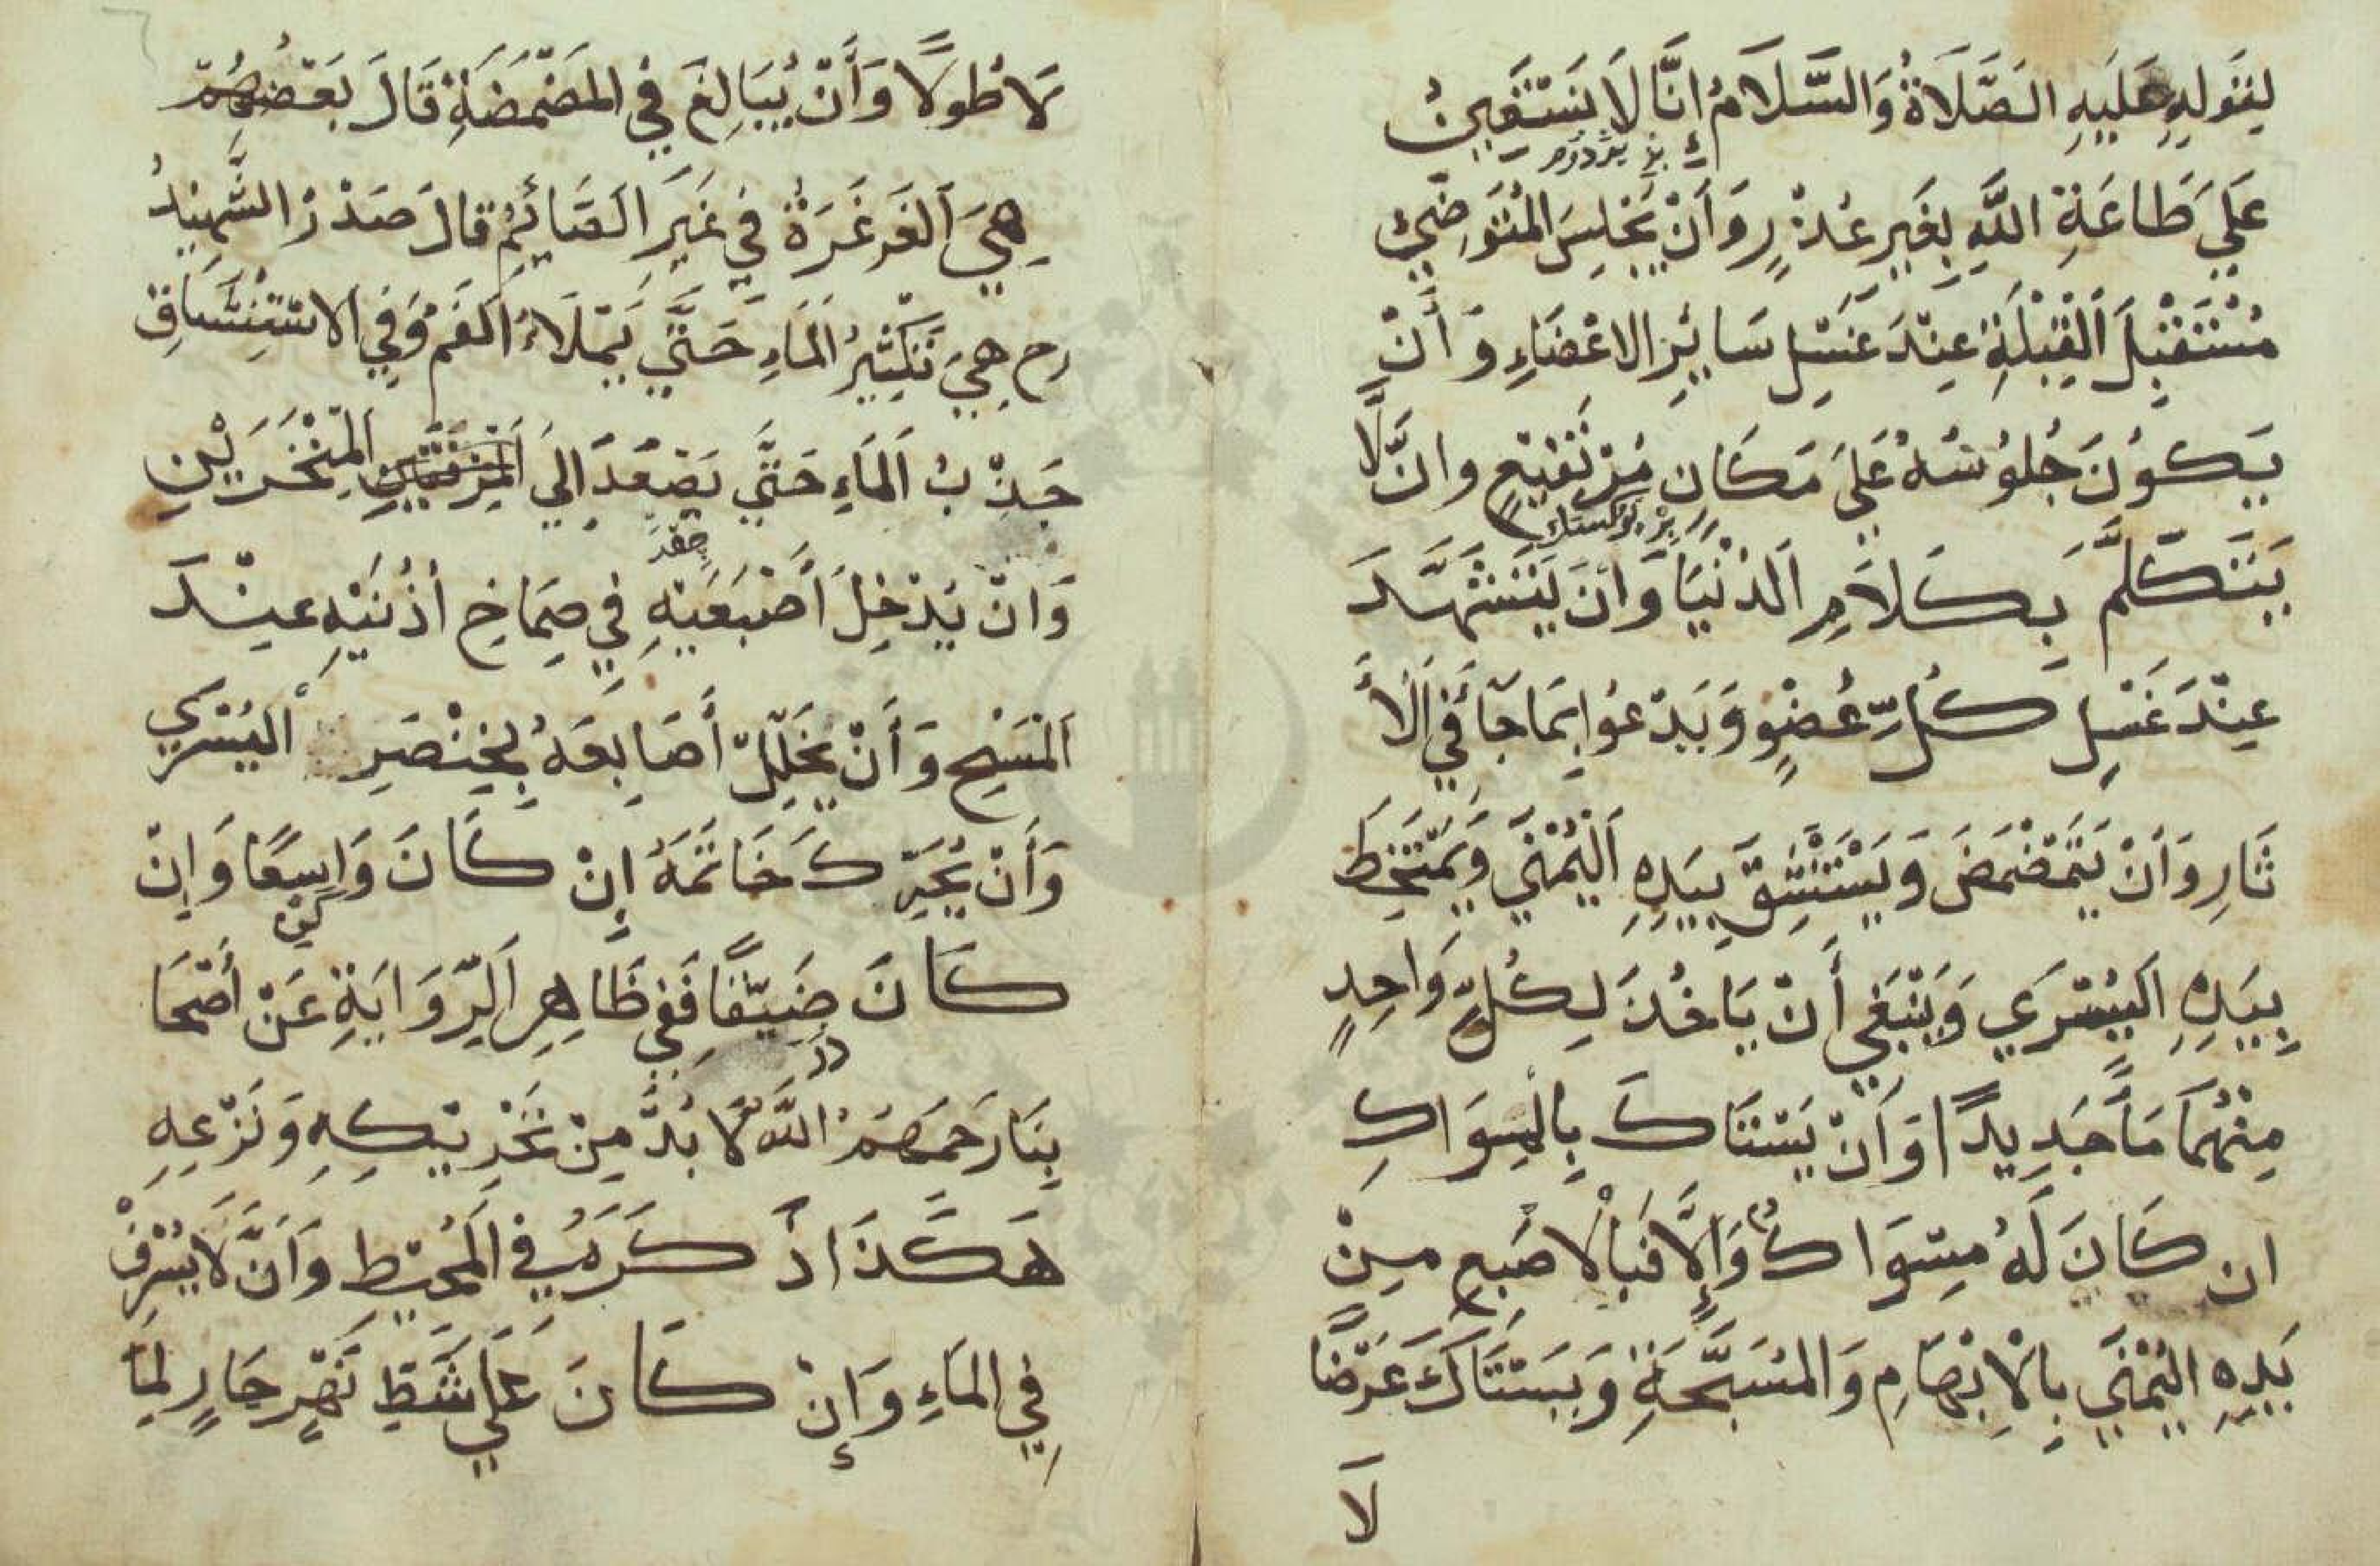 لِقَولِهِ عَلَيهِ الصَّلَاةُ وَالسَّلَامُ إِنَّا لَا نَسْتَعِينُ
عَلَي طَاعَةِ اللَّهِ بِغَيرِ عُذْرٍ وَأَنْ يَجْلِسَ الْمُتَوَضِّئُ
مُسْتَقْبِلَ الْقِبْلَةِ عِنْدَ غَسْلِ سَايِرِ الاعْضَاءِ وَأَنْ
يَكُونَ جُلُوسُهُ عَلَي مَكَانٍ مُرْتَفِعٍ وانْ لَا
يَتَكَلَّمَ بِكَلَامِ الدُنْيَا وَانَ يَتَشَهَّدَ
عِنْدَ غَسْلِ كُلِّ عُضْوٍ وَيَدْعُوا بِمَا جَآءَ فِي الْآ
ثَارِ وَأَنْ يَتَمَضْمَضَ وَيَسْتَنْشِقَ بِيَدِهِ الْيُمْنَي وَيَمْتَخِطَ
بِيَدِهِ الْيُسْرَي وَيَنْبَغِي أَنْ يَاخُذَ لِكُلِّ وَاحِدٍ
مِنْهُمَا مَآءً جَدِيدًا وَأَنْ يَسْتَاكَ بِالْسِوَاكِ
ان كَانَ لَهُ مِسْوَاكٌ وَإِلَّا فَبِالْاصْبَعِ مِنْ
يَدِهِ الْيُمْنَي بِالْاِبْهَامِ وَالْمُسَبِّحَةِ وَيَسْتَاكَ عَرْضًا
لَا
لَا طُولًا وَأَنْ يُبَالِغَ فِي الْمَضْمَضَةِ قَالَ بَعْضُهُمْ
هِيَ الْغَرغَرَةُ فِي غَيرِ الصَّائِمِ قَالَ صَدْرُ الشَّهِيدُ
رح هِيَ تَكْثِيرُ الْمَاءِ حَتَّي يَمْلَاءَ الْفَمَ وَفِي الاسْتِنْشَاقِ
جَذْبُ الْمَاءِ حَتَّي يَصْعُدَ اِلَي الْمِنْخَرَيْنِ
وَانْ يُدْخِلَ أَصْبَعَيْهِ فِي صِمَاخِ أُذُنَيْهِ عِنْدَ
الْمَسْحِ وَأَنْ يُخَلِّلَ أَصَابِعَهُ بِخِنْصَرِ الْيُسْرَي
وَأَنْ يُحَرِّكَ خَاتَمَهُ إِنْ كَانَ وَاسِعًا وَاِنْ
كَانَ ضَيِّقًا فَفِي ظَاهِرِ الرِّوَايَةِ عَنْ أَصْحَا
بِنَا رَحِمَهُمُ اللَّهُ لَا بُدَّ مِنْ تَحْرِيْكِهِ وَنَزْعِهِ
هَكَذَا ذَكَرَهُ فِي الْمُحِيْطِ وَاَنْ لَا يُسْرِفْ
فِي الْمَاءِ وَإِنْ كَانَ عَلَي شَطِّ نَهْرٍ جَارٍ لِمَا